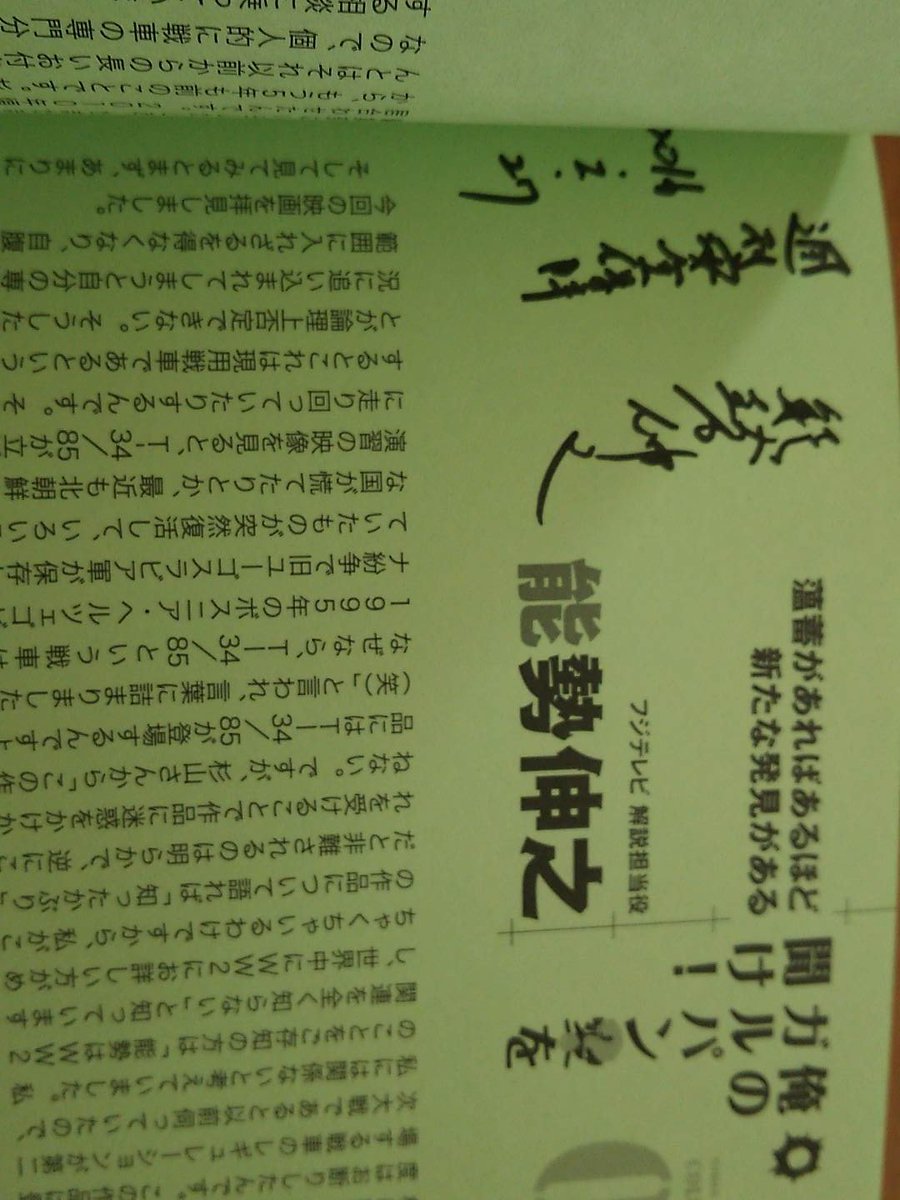 俺の
ガルパン愛を
聞け!
蘊蓄があればあるほど
新たな発見がある
フジテレビ 解説担当役
能勢伸之
能勢伸之
2016.2.27
度はお断りしたんです。この作品に登
場する戦車のレギュレーションが第二
次大戦であるとは以前伺っていたので、
私には関係ないと考えていました。私
のことをご存知の方は「能勢はWW2
関連を全く知らない」と知っています
し、世界中にWW2にお詳しい方がめ
ちゃくちゃいるわけですから、私がこ
の作品について語れば「知ったかぶり」
だと非難されるのは明らかで、逆にこ
れを受けることで作品に迷惑をかけか
ねない。ですが、杉山さんから「この作
品にはT-34/85が登場するんですよ
(笑)」と言われ、言葉に詰まりました
なぜなら、T-34/85という戦車は
1995年のボスニア・ヘルツェゴビ
ナ紛争で旧ユーゴスラビア軍が保存し
ていたものが突然復活して、いろいろ
な国が慌てたりとか、最近も北朝鮮
演習の映像を見ると、T-34/85が立
に走り回っていたりするんです。そ
するとこれは現用戦車であるという
とが論理上否定できない。そうした
況に追い込まれてしまうと自分の専
範囲に入れざるを得なくなり、自腹
今回の映画を拝見しました。
そして見てみるとまず、あまりに
から、もう5年も前のことです。
んとはそれ以前からの長いお付
なので、個人的に戦車の専門分
する相談に乗って